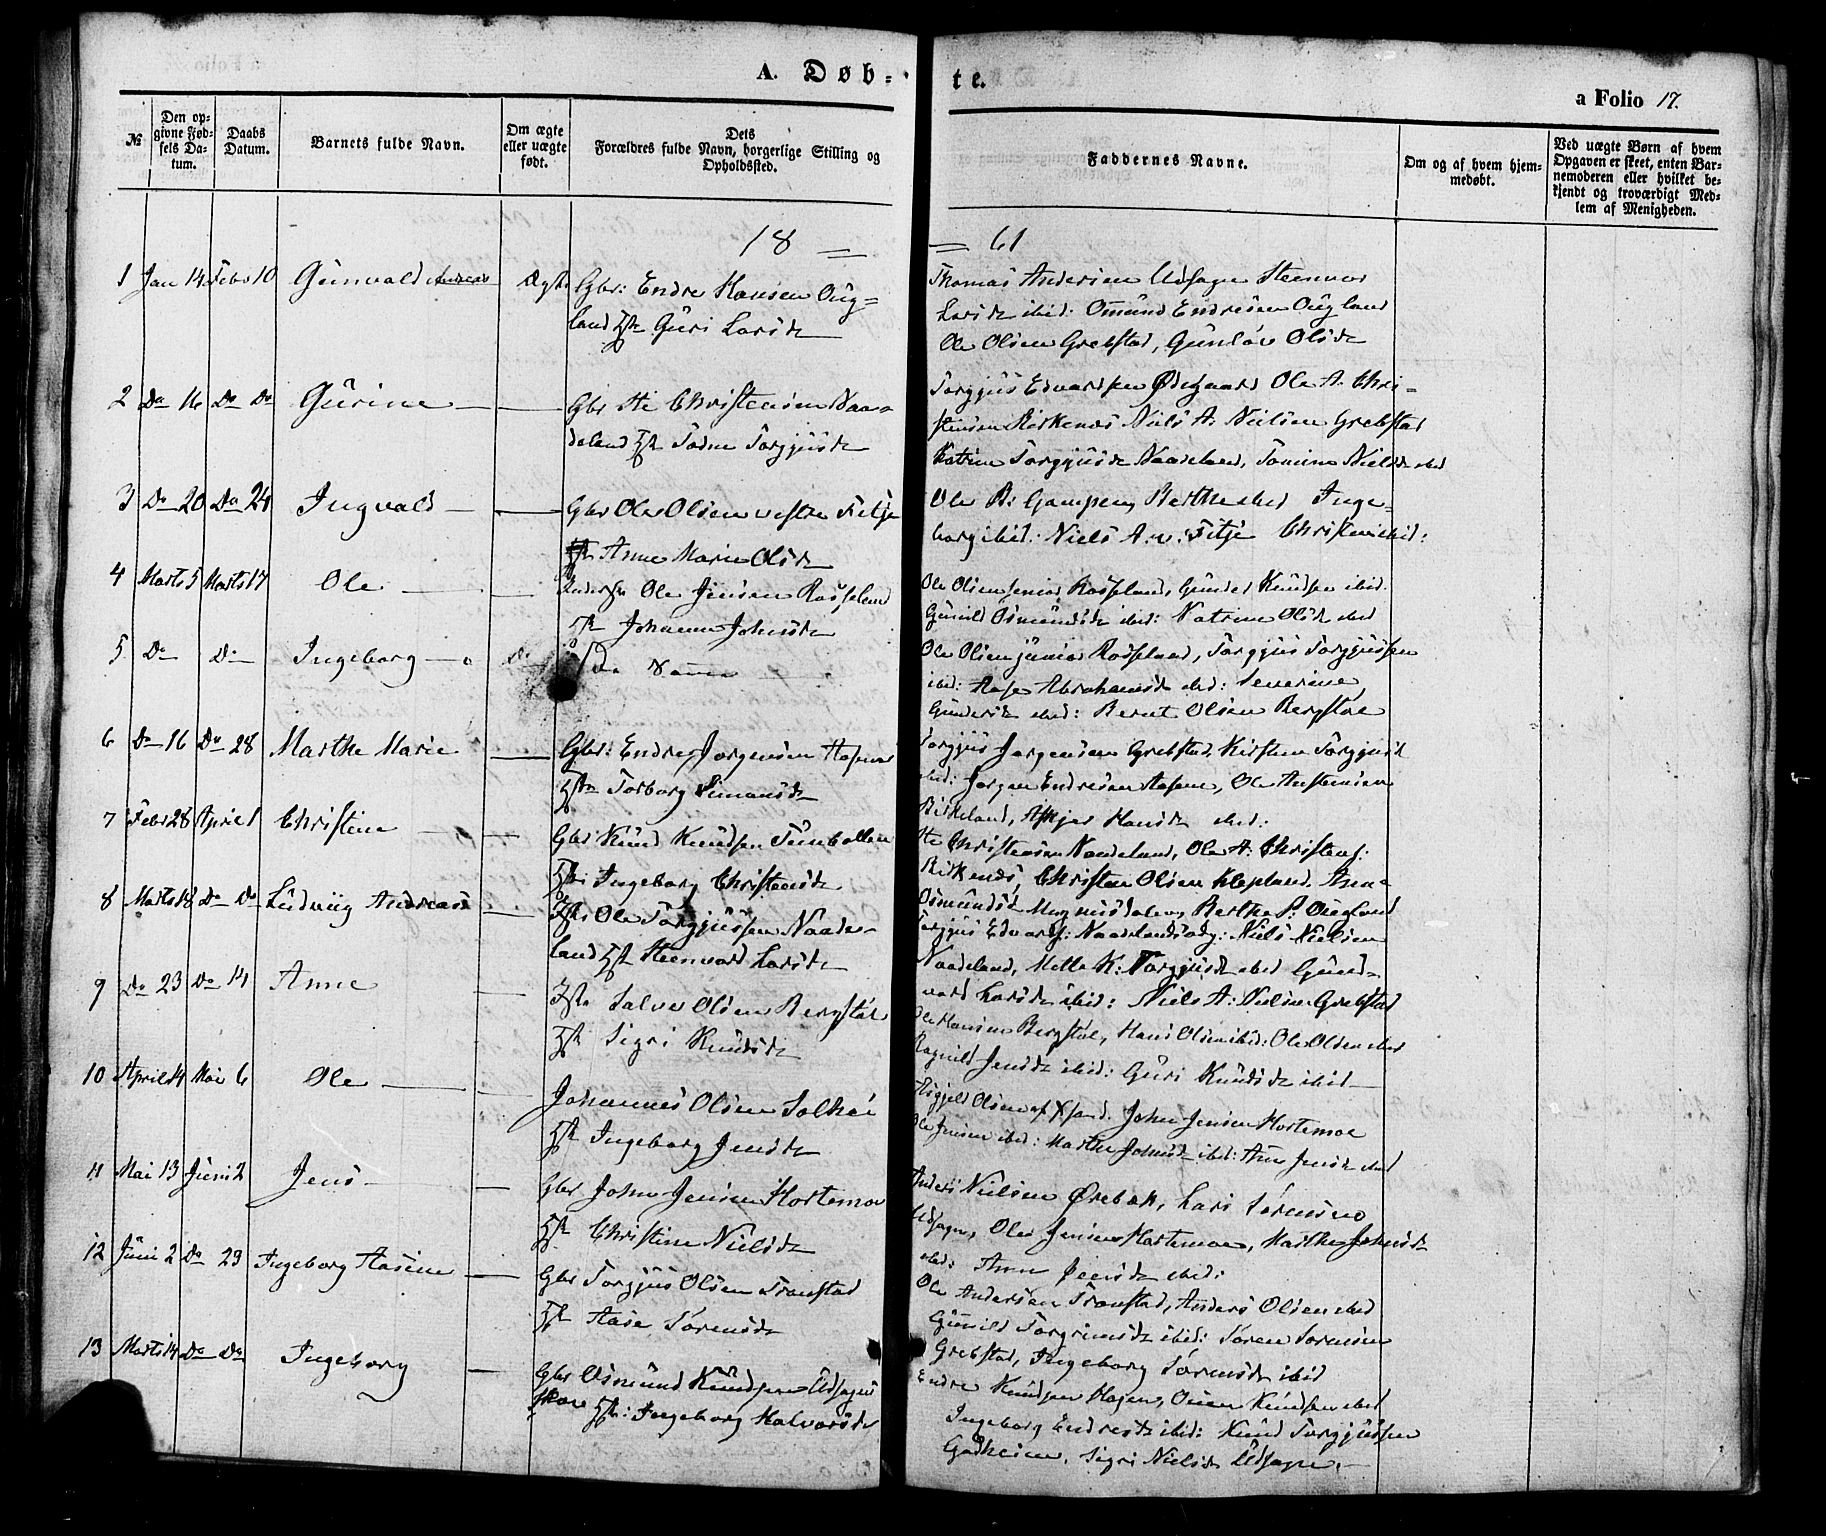 A. Døb-
te.
a Folio 17.
№
Den op-
givne Fød-
sels Da-
tum.
Daabs
Datum.
Barnets fulde Navn.
Om ægte
eller uægte
født.
Dets
Forældres fulde Navn, borgerlige Stilling og
Opholdssted.
Faddernes Navne.
Om og af hvem hjem-
medøbt.
Ved uægte Børn af hvem
Opgaven er skeet, enten Bar-
nemoderen eller hvilket be-
kjendt og troværdigt Med-
lem af Menigheden.
18 = = 61
1 Jan 14 Febr 10 Gunvald Andreas Ægte Gbr: Endre Hansen Oug-
land Hst Guri Larsd
Thomas Andersen Udsagn Steenvor
Larsd ibid: Omund Endresen Ougland
Ole Olsen Grebstad, Gunlov Olsd
2 Do 16 Do Do Gurine Gbr Ole Christensen Naa-
deland Hst Todne Torgjusd
Torgjus Edvardsen Ødegaard Ole A. Chri-
stensen Birkenes Niels A. Nielsen Grebstad
Katrine Torgjusd Naadeland, Tomine Nielsd ibid
3 Do 20 Do 24 Ingvald Gbr Ole Olsen vestre Fitje
Hst Anne Marie Olsd
Ole B: Gampen, Berthe ibid Inge-
borg ibid: Niels A. v: Fitje Christen ibid:
4 Marts 5 Marts 17 Ole Ole Jensen Rosseland
Hst Johanne Johnsd
Ole Olsen senior Rosseland, Gunder Knudsen ibid.
Gunild Osmundsd ibid: Katrine Olsd ibid
5 Do Do Ingeborg Do Do Samme
Ole Olsen junior Rosseland, Torgjus Torgjussen
ibid: Aase Abrahamsd ibid: Severine
Gundersd ibid: Bernt Olsen Bergstøl
6 Do 16 Do 28 Marthe Marie Gbr: Endre Jørgensen Aasene
Hst Torborg Simonsd
Torgjus Jørgensen Grebstad, Kirsten Torgjusd
ibid: Jørgen Endresen Aasene, Ole Austensen
Birkeland, Askjer Hansd ibid:
7 Febr 28 April 1 Christine Gbr Knud Knudsen Tunballen
Hst Ingeborg Christensd
Ole Christensen Naadeland, Ole A: Christens:
Birkenes, Christen Olsen Klepland. Anne
Osmundsd Mognusdalen, Berthe P: Ougland
8 Marts 18 Do Do Ludvig Andreas Hst Ole Torgjussen Naade-
land Hst Steenvord Larsd
Torgjus Edvards: Naadelandsødg: Niels Nielsen
Naadeland, Mette K: Torgjusd ibid Gund-
vord Larsd ibid: Niels A: Nielsen Grebstad
9 Do 23 Do 14 Anne Hst Salve Olsen Bergstøl
Hst Sigri Knudsd
Ole Hansen Bergstøl, Hans Olsen ibid: Ole Olsen ibid
Ragnild Jensd ibid: Guri Knudsd ibid
10 April 14 Mai 6 Ole Johannes Olsen Solhei
Hst Ingeborg Jensd
Asgjeld Olsen af Xsand. John Jensen Hortemoe
Ole Jensen ibid: Marthe Johnsd ibid: Ane Jensd ibid
11 Mai 13 Juni 2 Jens Gbr John Jensen Hortemoe
Hst Christine Nielsd
Anders Nielsen Ørebæk, Lars Sørensen
Udsagn, Ole Jensen Hortemoe, Marthe Johnsd
ibid: Anne Jensd ibid:
12 Juni 2 Do 23 Ingeborg Aasine Gbr Torgjus Olsen Tronstad
Hst Aase Sørensd
Ole Andersen Tronstad, Anders Olsen ibid
Gunild Torgrimsd ibid: Søren Sørensen
Grebstad, Ingeborg Sørensd ibid
13 Marts 14 Do Do Ingeborg Gbr Osmund Knudsen Udsagns
Hst: Ingeborg Halvorsd
Endre Knudsen Hagen, Onen Knudsen ibid
Ingeborg Endresd ibid: Knud Torgjussen
Godheien, Sigri Nielsd Udsagn.